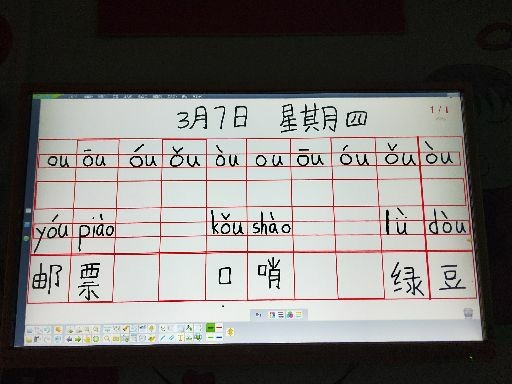 3月7日 星期四
1/1
ou ōu óu ǒu òu ou ōu óu ǒu òu
yóu piào kǒu shào lǜ dòu
邮 票 口 哨 绿 豆